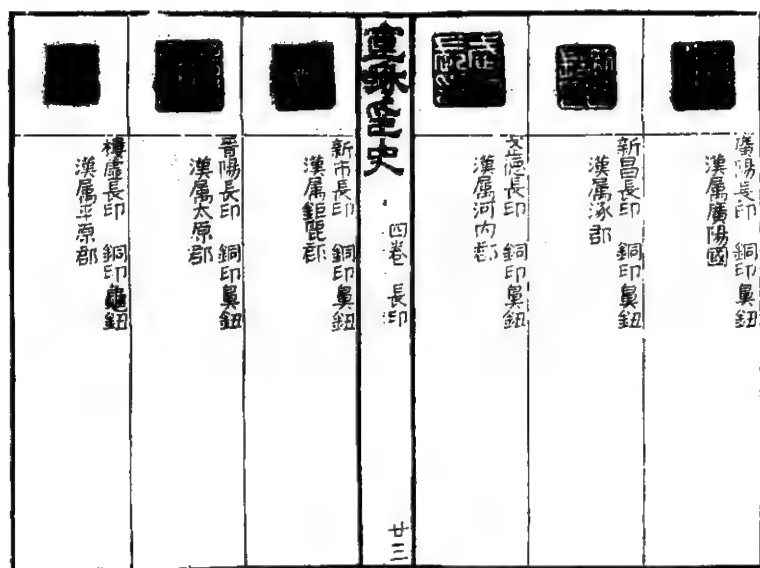 廣陽長印 銅印鼻鈕
漢属廣陽國
新昌長印 銅印鼻鈕
漢属涿郡
武德長印 銅印鼻鈕
漢属河内郡
宣龢印史
四卷 長印
廿三
新市長印 銅印鼻鈕
漢属鉅鹿郡
晋陽長印 銅印鼻鈕
漢属太原郡
樓虛長印 銅印龜鈕
漢属平原郡